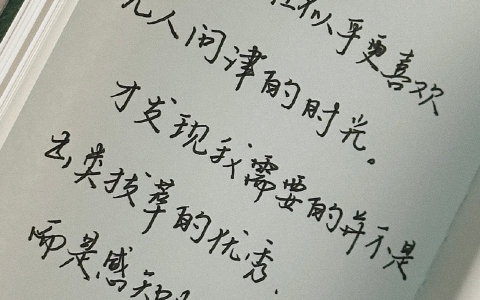 似乎更喜欢
无人问津的时光。
才发现我需要的并不是
出类拔萃的优秀，
而是感知